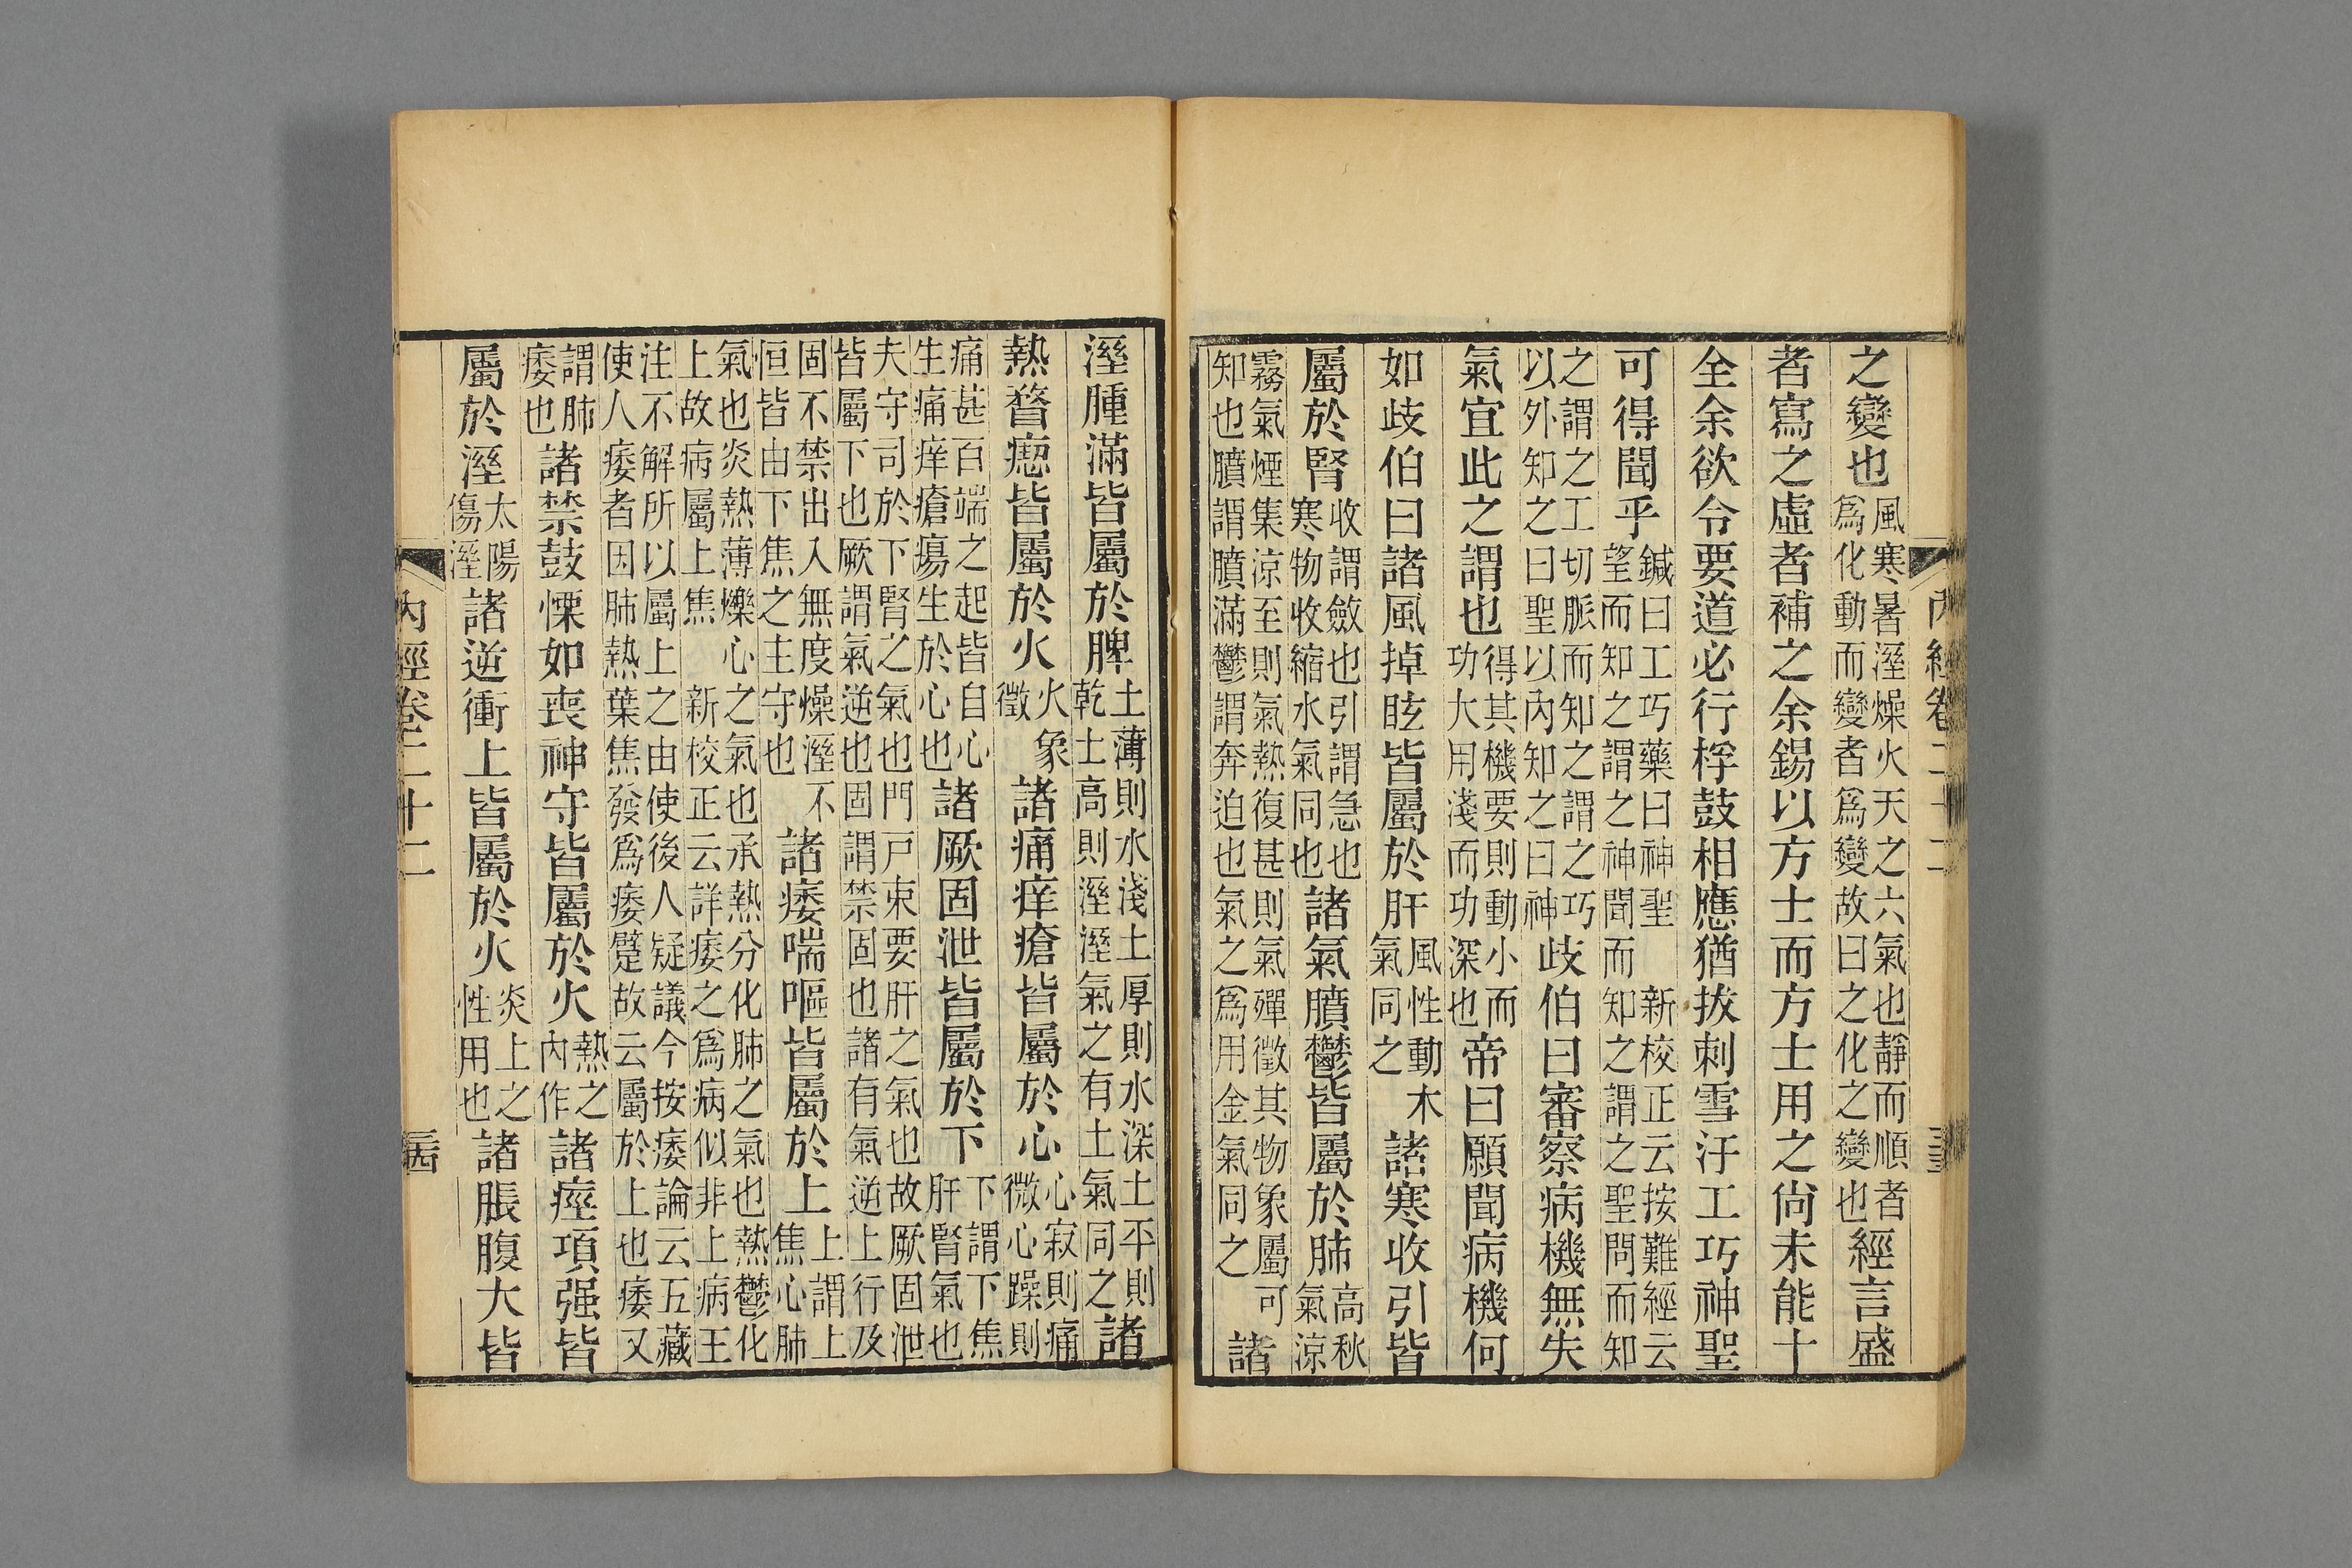 內經卷二十二
之變也風寒暑溼燥火天之六氣也靜而順者
爲化動而變者爲變故曰之化之變也經言盛
者寫之虛者補之余錫以方士而方士用之尚未能十
全余欲令要道必行桴鼓相應猶拔刺雪汙工巧神聖
可得聞乎鍼曰工巧藥曰神聖 新校正云按難經云
望而知之謂之神聞而知之謂之聖問而知
之謂之工切脈而知之謂之巧
以外知之曰聖以內知之曰神歧伯曰審察病機無失
氣宜此之謂也得其機要則動小而
功大用淺而功深也帝曰願聞病機何
如歧伯曰諸風掉眩皆屬於肝風性動木
氣同之諸寒收引皆
屬於腎收謂斂也引謂急也
寒物收縮水氣同也諸氣膹鬱皆屬於肺高秋
氣涼
霧氣煙集涼至則氣熱復甚則氣殫徵其物象屬可
知也膹謂膹滿鬱謂奔迫也氣之爲用金氣同之諸
溼腫滿皆屬於脾土薄則水淺土厚則水深土平則
乾土高則溼溼氣之有土氣同之諸
熱瞀瘛皆屬於火火象
徵諸痛痒瘡皆屬於心心寂則痛
微心躁則
痛甚百端之起皆自心
生痛痒瘡瘍生於心也諸厥固泄皆屬於下下謂下焦
肝腎氣也
夫守司於下腎之氣也門戸束要肝之氣也故厥固泄
皆屬下也厥謂氣逆也固謂禁固也諸有氣逆上行及
固不禁出入無度燥溼不
恒皆由下焦之主守也諸痿喘嘔皆屬於上上謂上
焦心肺
氣也炎熱薄爍心之氣也承熱分化肺之氣也熱鬱化
上故病屬上焦 新校正云詳痿之爲病似非上病王
注不解所以屬上之由使後人疑議今按痿論云五藏
使人痿者因肺熱葉焦發爲痿躄故云屬於上也痿又
謂肺
痿也諸禁鼓慄如喪神守皆屬於火熱之
內作諸痙項强皆
屬於溼太陽
傷溼諸逆衝上皆屬於火炎上之
性用也諸脹腹大皆
內經卷二十二
三四